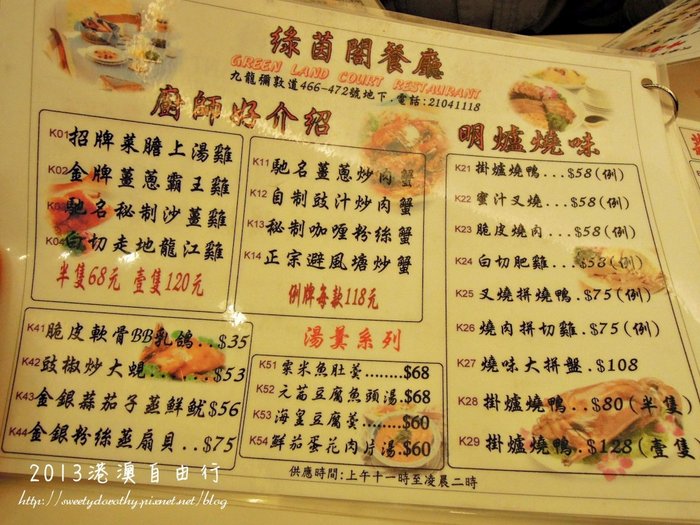 綠茵閣餐廳
GREEN LAND COURT RESTAURANT
九龍彌敦道466-472號地下．電話:21041118
廚師好介紹
K01 招牌菜膽上湯雞
K02 金牌薑蔥霸王雞
K03 馳名秘制沙薑雞
K04 白切走地龍江雞
半隻68元 壹隻120元
K11 馳名薑蔥炒肉蟹
K12 自制豉汁炒肉蟹
K13 秘制咖喱粉絲蟹
K14 正宗避風塘炒蟹
例牌每款118元
明爐燒味
K21 掛爐燒鴨...$58(例)
K22 蜜汁叉燒...$58(例)
K23 脆皮燒肉...$58(例)
K24 白切肥雞...$58(例)
K25 叉燒拼燒鴨.$75(例)
K26 燒肉拼切雞.$75(例)
K27 燒味大拼盤.$108
K28 掛爐燒鴨..$80(半隻)
K29 掛爐燒鴨..$128(壹隻
K41 脆皮軟骨BB乳鴿...$35
K42 豉椒炒大蜆......$53
K43 金銀蒜茄子蒸鮮魷$56
K44 金銀粉絲蒸扇貝..$75
湯羹系列
K51 粟米魚肚羹........$68
K52 元茜豆腐魚頭湯.$68
K53 海皇豆腐羹......$60
K54 鮮茄蛋花肉片湯.$60
供應時間:上午十一時至凌晨二時
2013港澳自由行
http://sweetydorothy.pixnet.net/blog